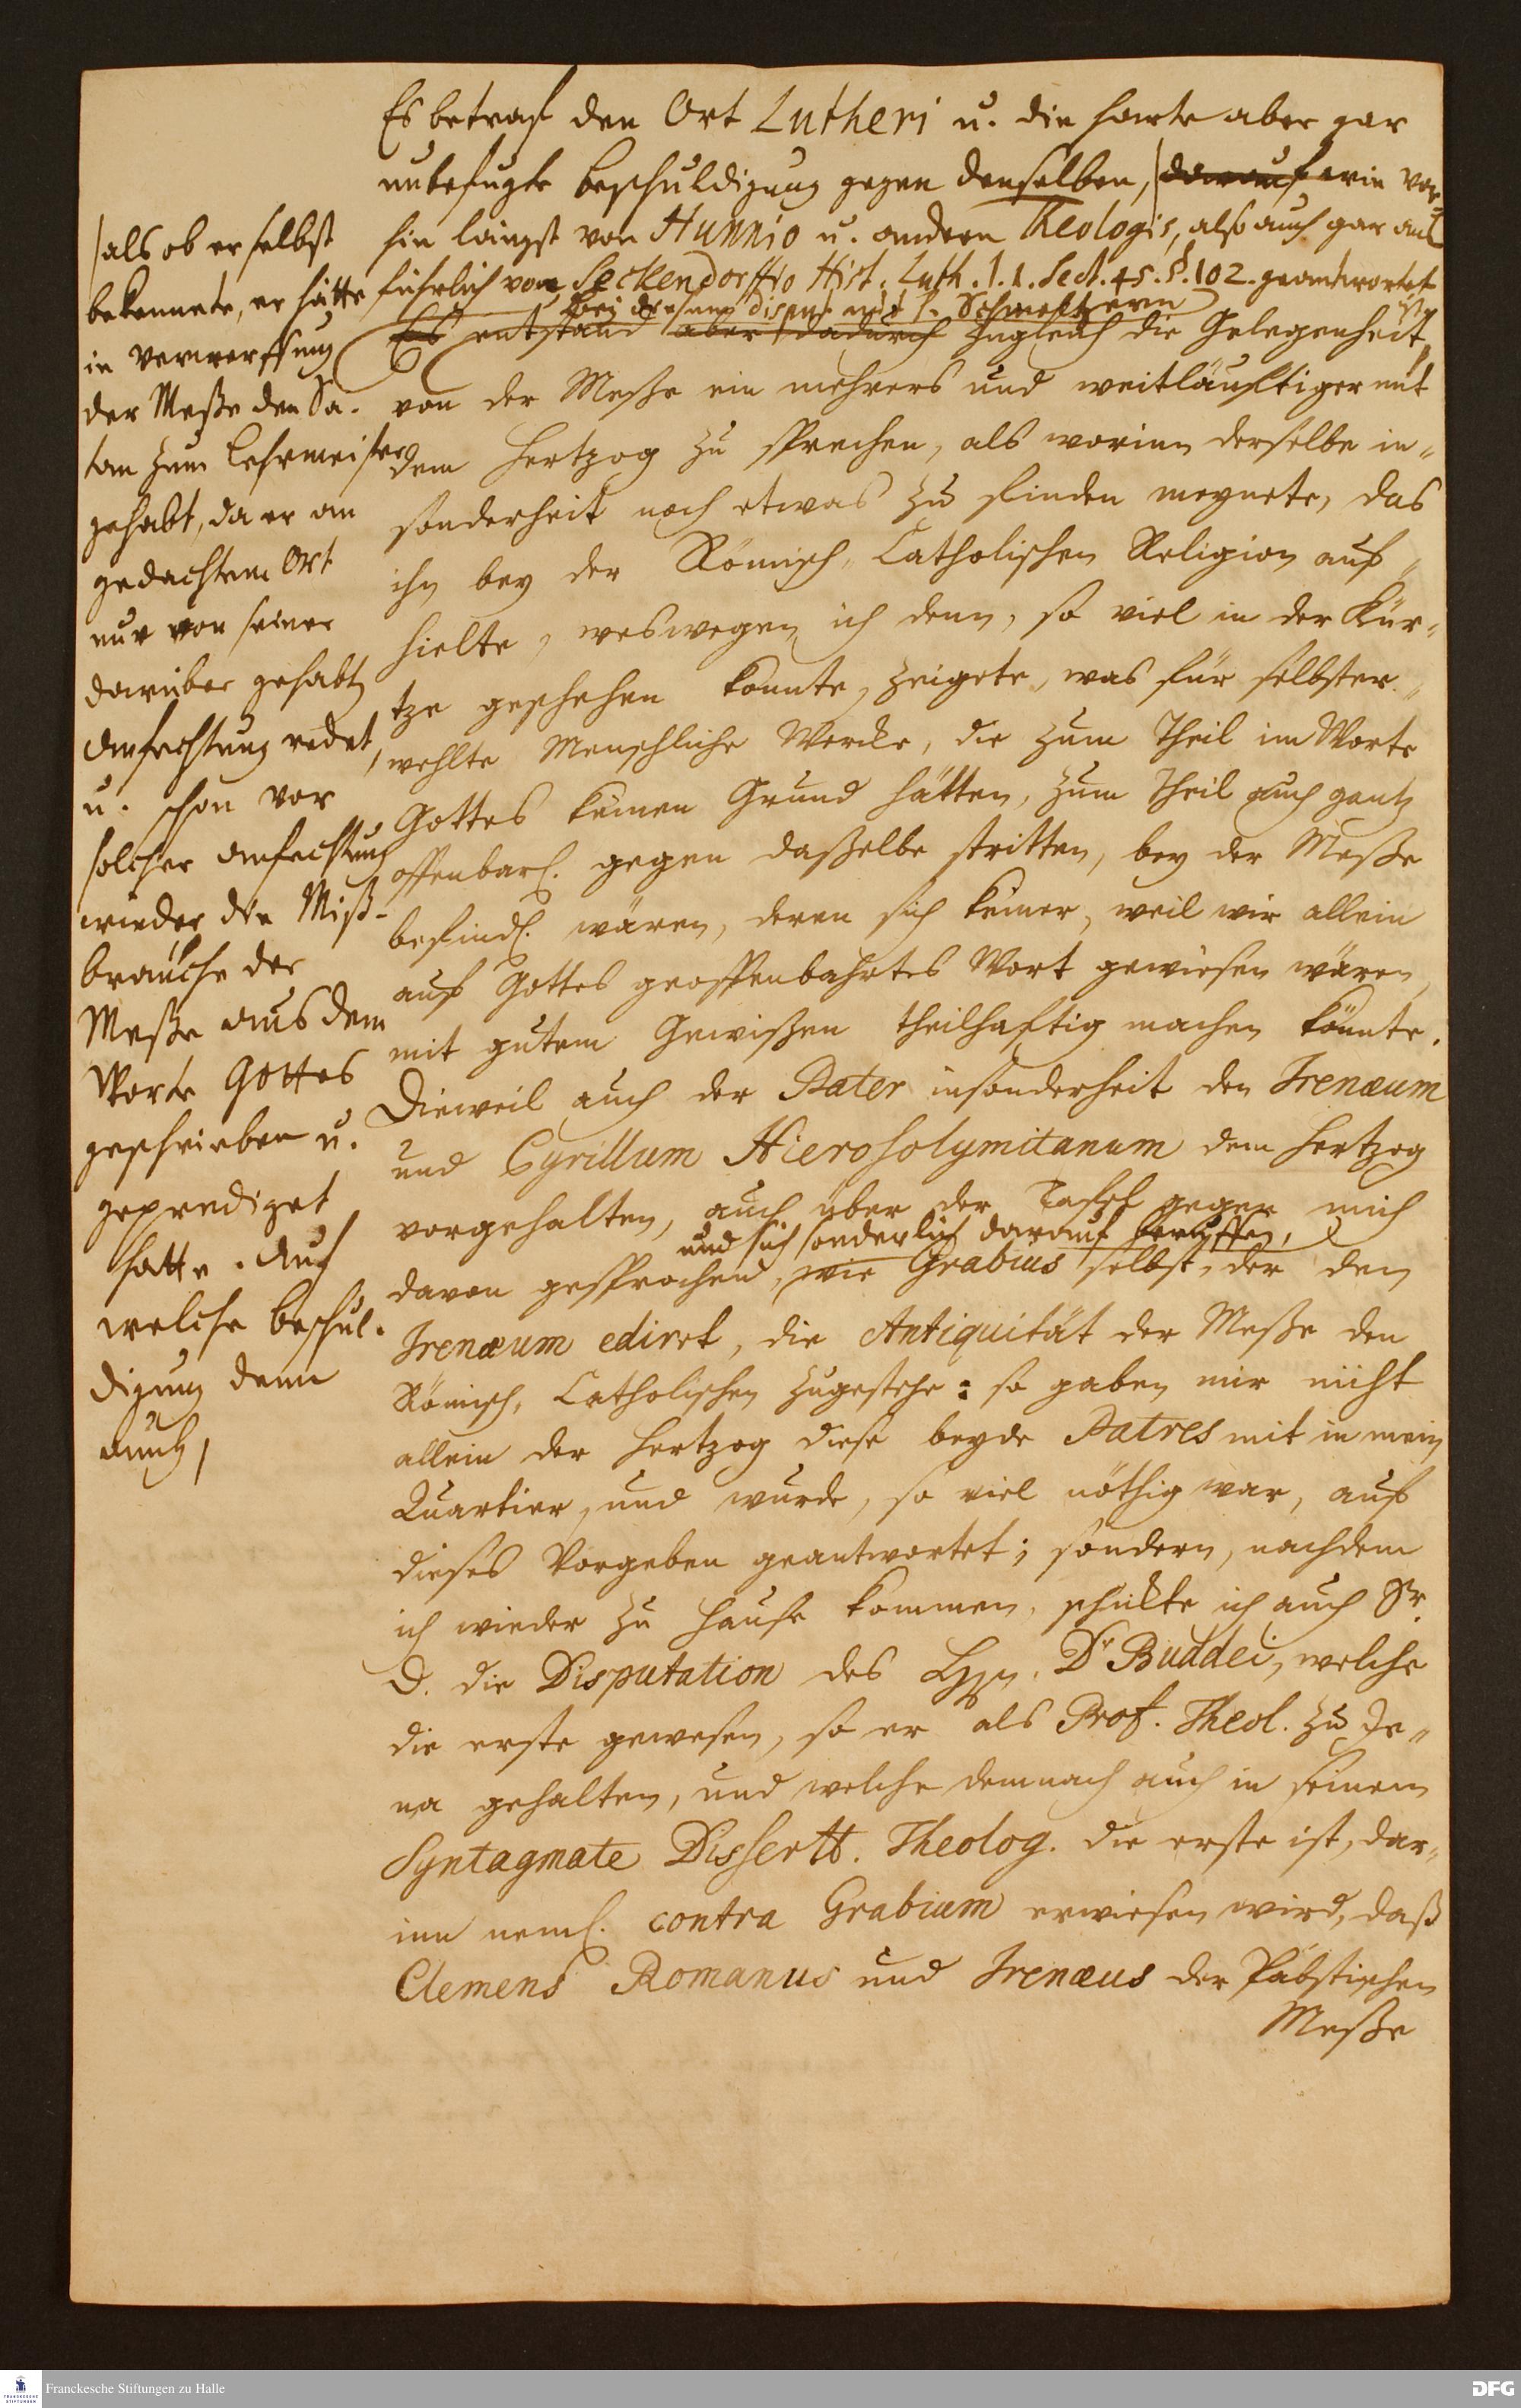 Es betraf den Ort Lutheri u. die harte aber gar
unbefugte Beschuldigung gegen denselben, darauf wie vor-
hin längst von Hunnio u. andern Theologis, also auch gar aus
führlich von Seckendorffio Hist. Luth. l. 1. Sect. 45. §. 102. geantwortet
ist.
bei diesem disput mit P. Schmeltzern
Es entstand aber dadurch zugleich die Gelegenheit,
von der Messe ein mehrers und weitläufftiger mit
dem Hertzog zu sprechen, als worinn derselbe in-
sonderheit noch etwas zu finden meynete, das
ihn bey der Römisch-Catholischen Religion auf-
hielte, weswegen ich denn, so viel in der Kür-
tze geschehen konnte, zeigete, was für selbster-
wehlte Menschliche Wercke, die zum Theil im Worte
Gottes keinen Grund hätten, zum Theil auch gantz
offenbarl. gegen daßelbe stritten, bey der Meße
befindl. wären, deren sich keiner, weil wir allein
auf Gottes geoffenbahrtes Wort gewiesen wären,
mit gutem Gewißen theilhafftig machen könnte.
Dieweil auch der Pater insonderheit den Irenæum
und Cyrillum Hierosolymitanum dem Hertzog
vorgehalten, auch über der Taffel gegen mich
und sich sonderlich darauf beruffen,
davon gesprochen, wie Grabius selbst, der den
Irenæum edirt, die Antiquität der Meße den
Römisch-Catholischen zugestehe: so gaben mir nicht
allein der Hertzog diese beyde Patres mit in mein
Quartier, und wurde, so viel nöthig war, auf
dieses Vorgeben geantwortet; sondern, nachdem
ich wieder zu Hause kommen, schickte ich auch Sr.
D. die Disputation des Hrn. Dr Buddei, welche
die erste gewesen, so er als Prof. Theol. zu Je-
na gehalten, und welche demnach auch in seinem
Syntagmate Dissertt. Theolog. die erste ist, dar-
inn neml. contra Grabium erwiesen wird, daß
Clemens Romanus und Irenæus der Päbstischen
Meße
als ob er selbst
bekennete, er hätte
in verwerffung
der Meße den Sa-
tan zum Lehrmeister
gehabt, da er an
gedachtem Ort
nur von seiner
darüber gehabten
anfechtung redet,
u. schon vor
solcher anfechtung
wieder die Miß-
bräuche der
Meße aus dem
Worte Gottes
geschrieben u.
geprediget
hatte. Auf
welche beschul-
digung denn
auch
Franckesche Stiftungen zu Halle
DFG